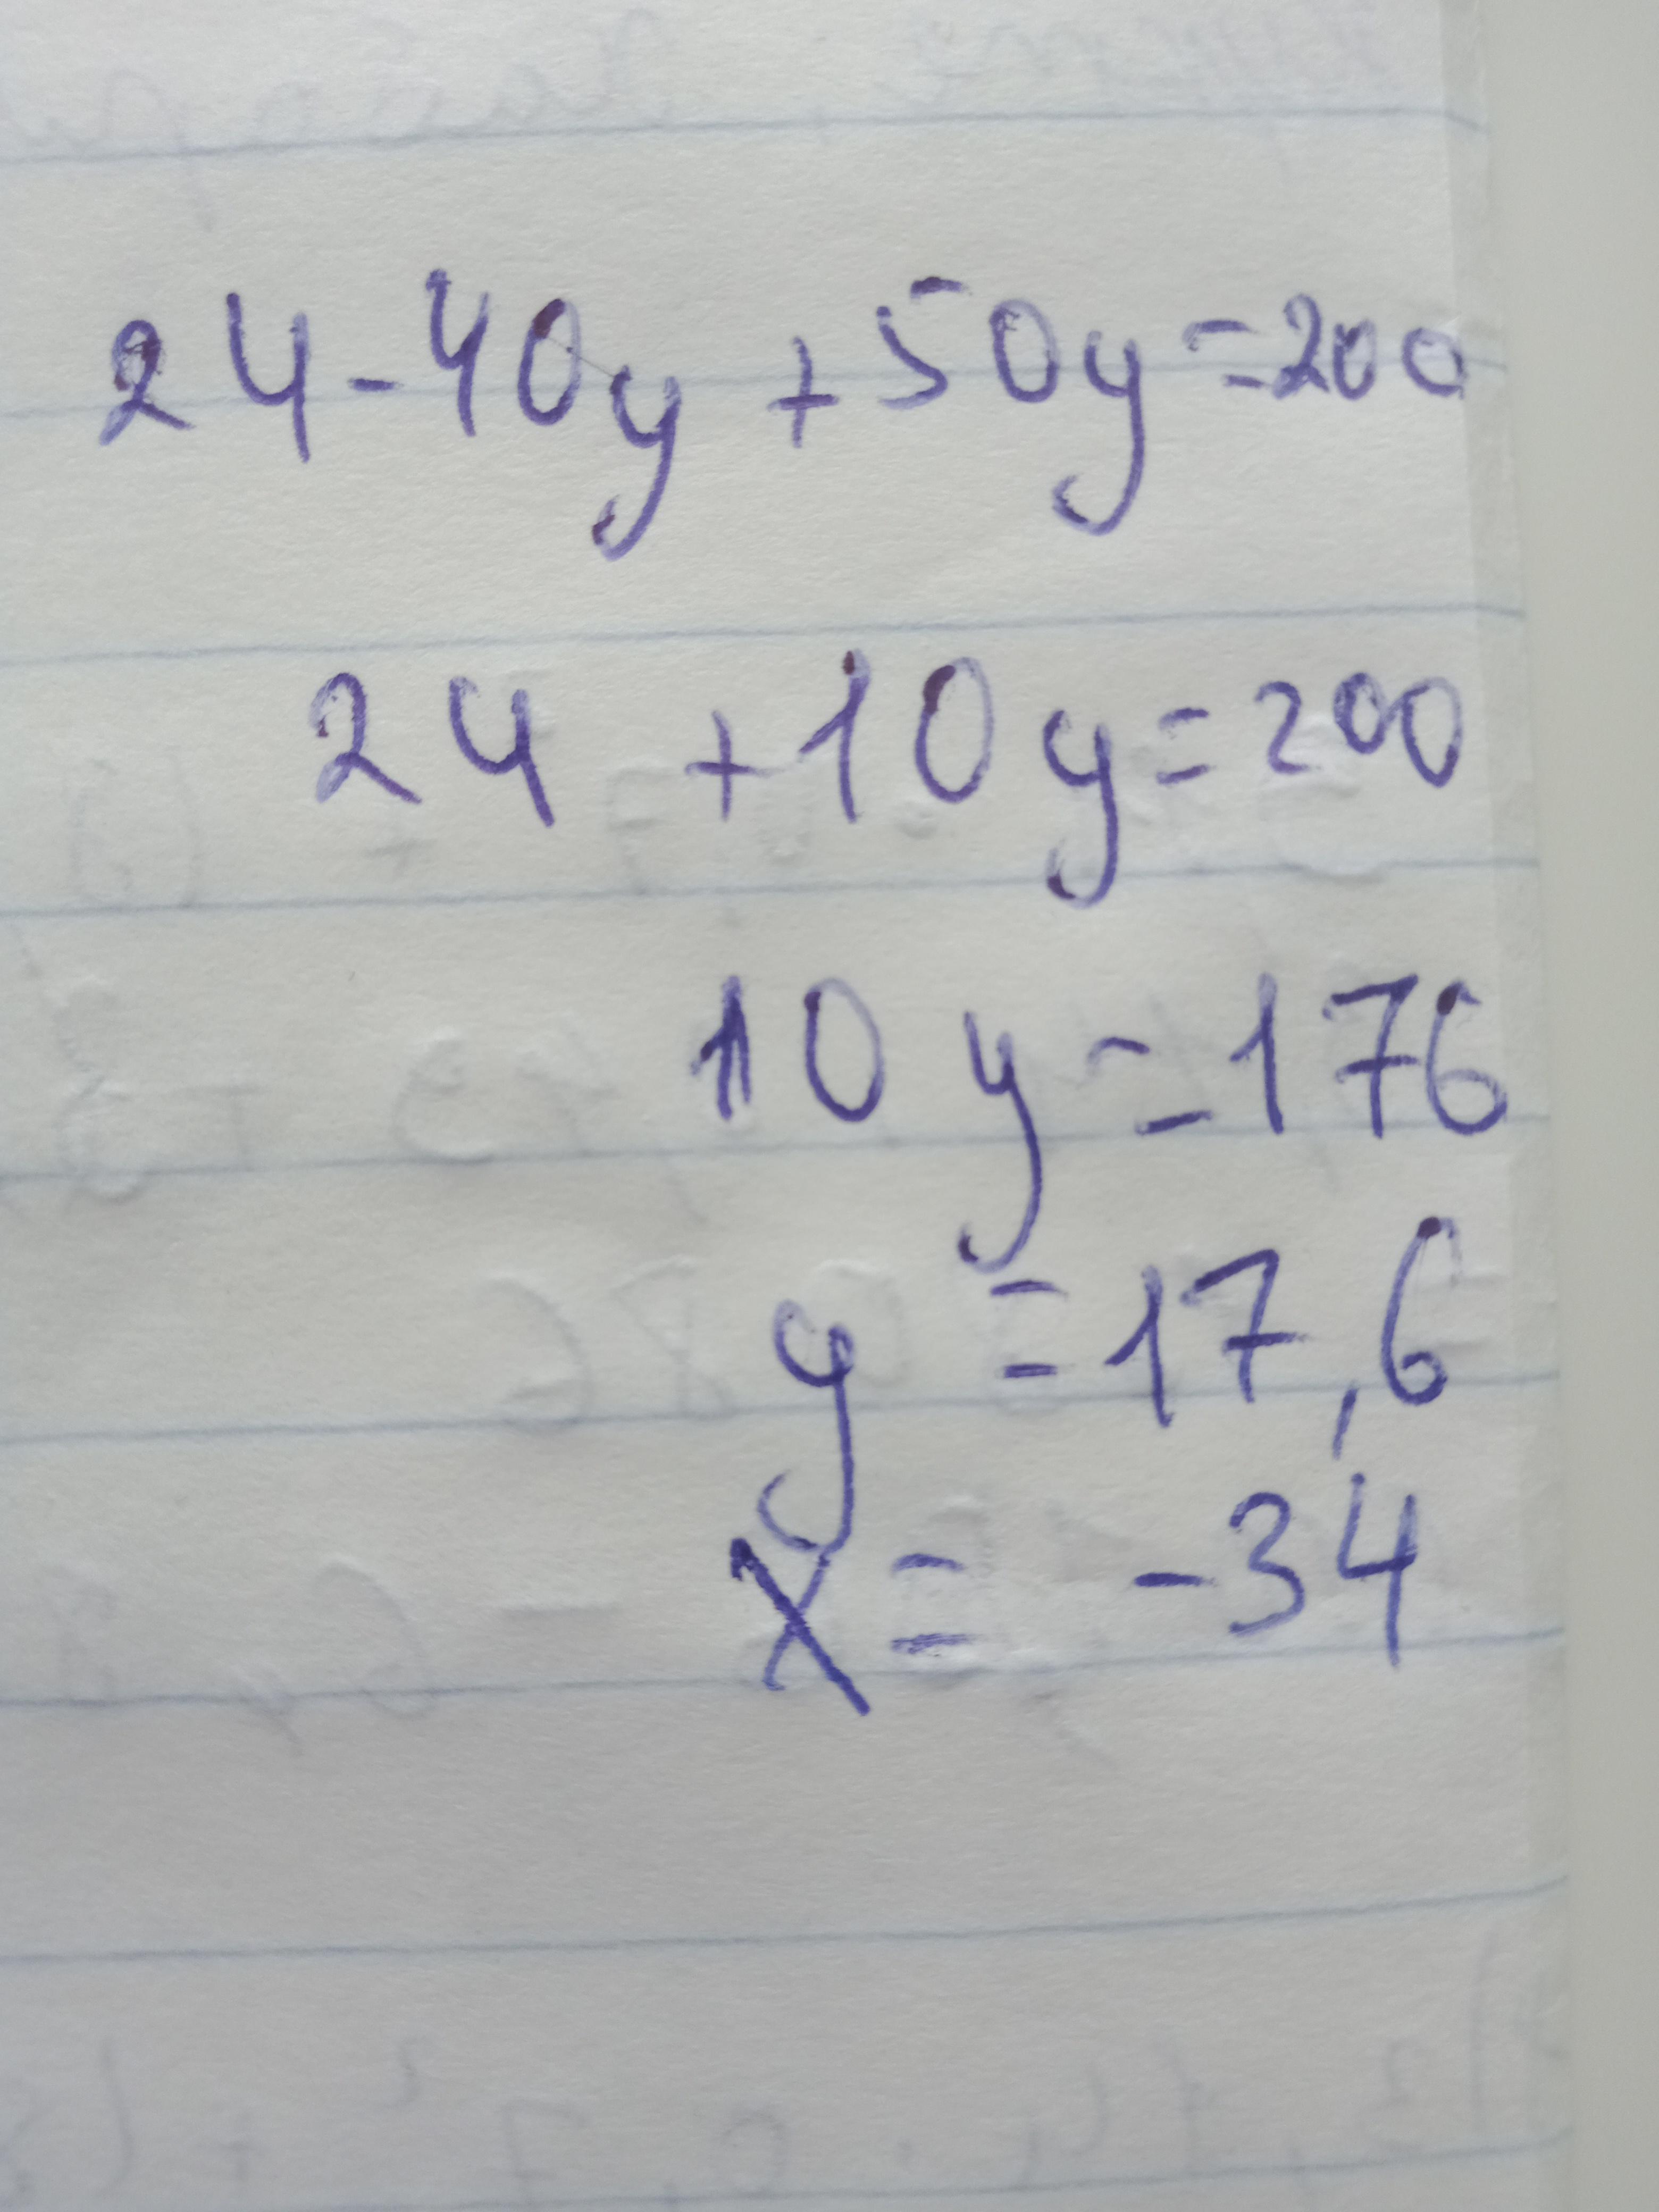 24-40y+50y=200
24+10y=200
10y=176
y=17,6
x=-34